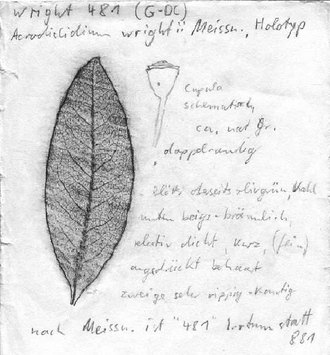 Wright 481 (G-DC)
Acrodiclidium wrightii Meissn., Holotyp
Cupula
schematisch
ca. nat Gr.
doppelrandig
Blätter oberseits olivgrün, kahl
unten beige-bräunlich,
relativ dicht, kurz, (fein)
angedrückt behaart
Zweige sehr rippig-kantig
nach Meissn. ist "481" Irrtum statt
881